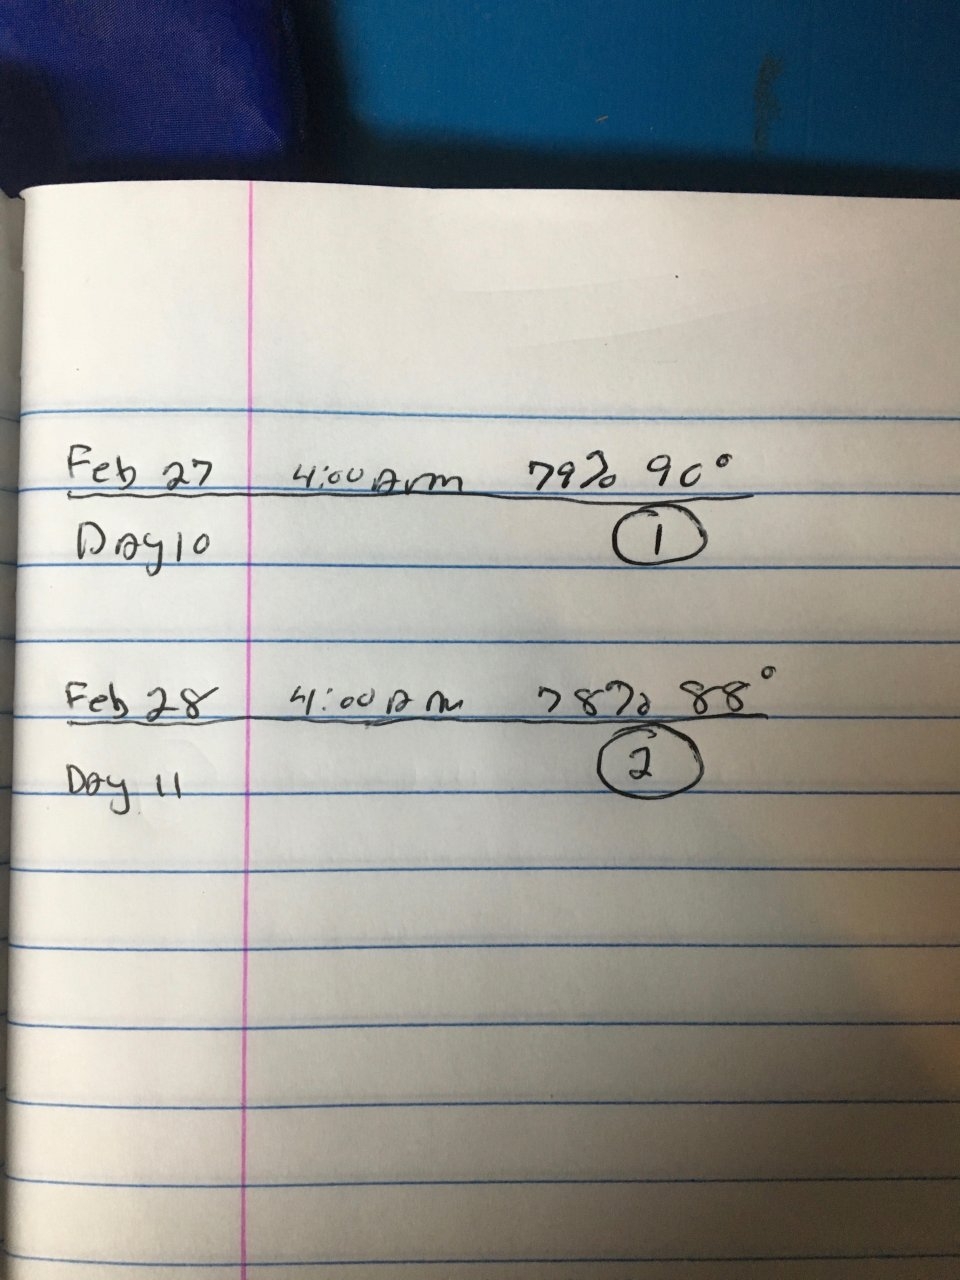 Feb 27 4:00 Am 79% 90°
Day 10 1
Feb 28 4:00 Am 78% 88°
Day 11 2